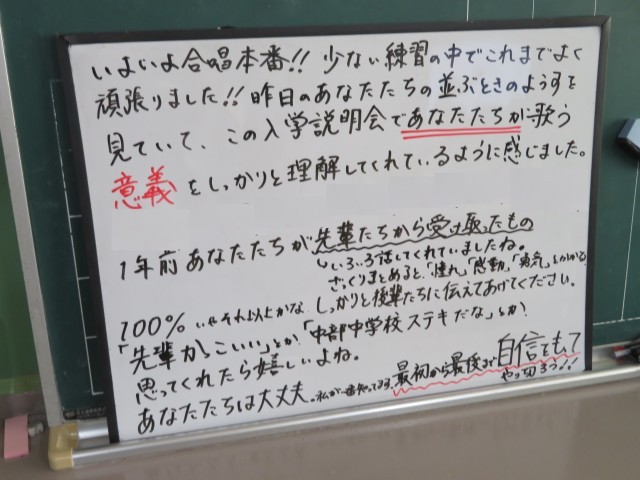 いよいよ合唱本番!! 少ない練習の中でこれまでよく
頑張りました!! 昨日のあなたたちの並ぶときのようすを
見ていて、この入学説明会であなたたちが歌う
意義をしっかりと理解してくれているように感じました。
1年前あなたたちが先輩たちから受け取ったもの
いろいろ話してくれていましたね。
ざっくりまとめると、「憧れ」「感動」「勇気」とかかな
しっかりと後輩たちに伝えてあげてください。
100% いやそれ以上かな
「先輩かっこいい」とか「中部中学校ステキだな」とか
思ってくれたら嬉しいよね。
あなたたちは大丈夫。私が一番知ってます。最初から最後まで自信をもって
やり切ろう!!